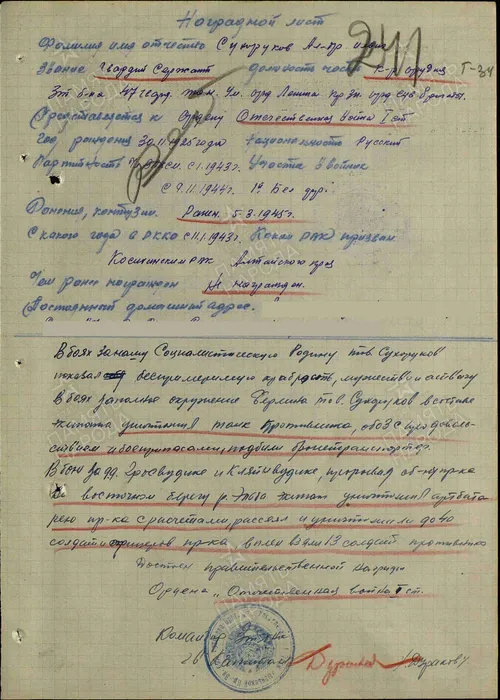 Наградной лист
241
Фамилия имя отчество Сухоруков Ал-др
Звание Гвардии Сержант должность части К-р орудия Т-34
3тб б-на 47 гвард. танк. Ум. орд Ленина Кр Зн. орд Сув бригады.
Представляется к Ордену Отечественная Война I ст
Год рождения 1925 года Национальность Русский
Партийность с 1943г. Участв в войнах
с 9.11.1944г. 1й Бел фр.
Ранения, контузии. Ранен. 5.3.1945г.
С какого года в РККА с 11.1.1943г. Каким РВК призван
Косихинским РВК Алтайского края
Чем ранее награжден Не награжден.
Постоянный домашний адрес.
В боях за нашу Социалистическую Родину тов. Сухоруков
показал беспримерную храбрость, мужество и отвагу
В боях за полное окружение Берлина тов. Сухоруков в составе
экипажа уничтожил танк противника, обоз с продоволь-
ствием и боеприпасами, подбили бронетранспортер.
В бою за дд. и прорывая об-ну пр-ка
восточном берегу р. Эльба экипаж уничтожил артбата
рею пр-ка с расчетами, рассеял и уничтожил до 40
солдат и офицеров пр-ка, взял в плен 13 солдат противника
Достоин правительственной награды
Ордена „Отечественная война I ст.
Командир
Гв Капитан